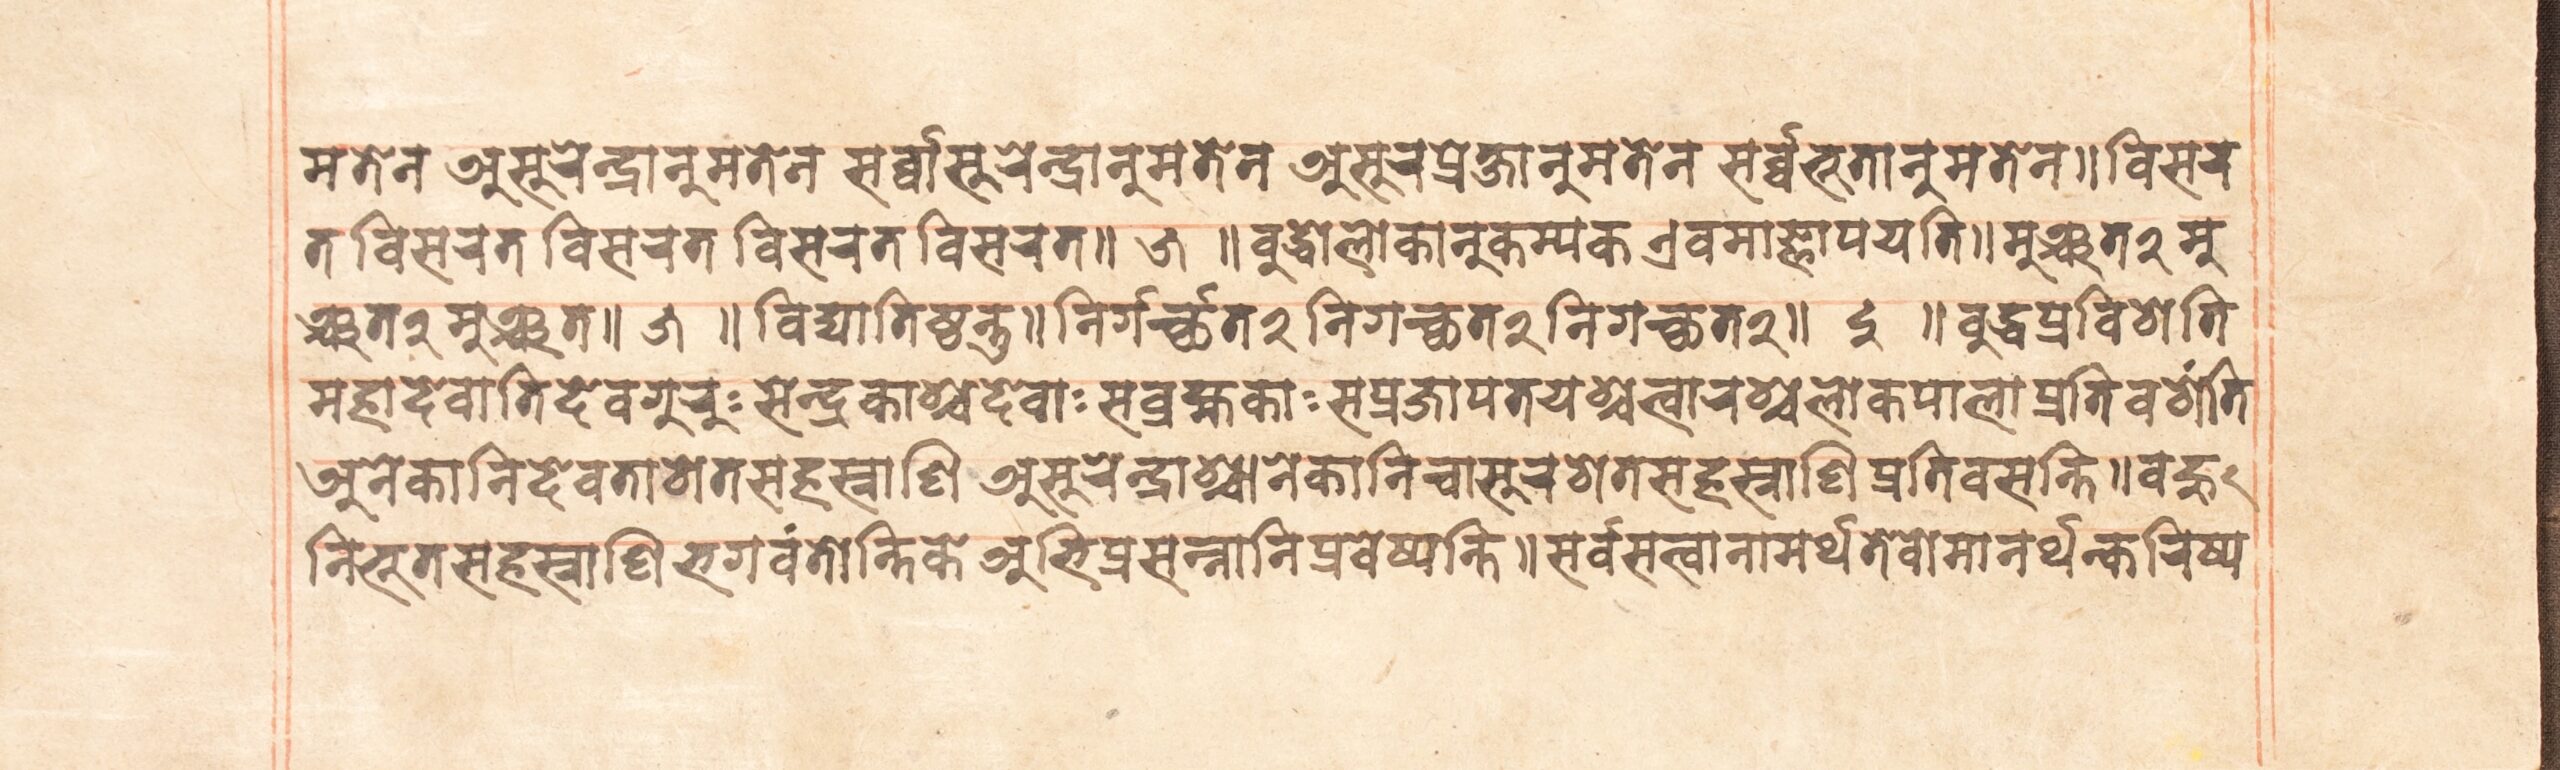 मतेन असुरेन्द्रानुमतेन सर्व्वासूरेन्द्रानुमतेन असुरप्रेष्यानुमतेन सर्व्वभूतानुमतेन॥विसर
त विसरत विसरत विसरत विसरत॥ ५ ॥बुद्धोलोकानुकम्पक एवमाज्ञापयति॥मुञ्चत२ मु
ञ्चत२ मुञ्चत॥ ५ ॥विद्यातिष्ठन्तु॥निर्गर्च्छत२ निगच्छत२ निगच्छत२॥ ६ ॥बुद्धप्रविशेति
महादेवातिदेवगुरुः सेन्द्रकाश्चदेवाः सब्रह्मकाः सप्रजापतयश्चत्वारश्चलोकपालाप्रतिवशेंति
अनेकानिदेवताशतसहस्राणि असुरेन्द्राश्चानेकानिचासुरशतसहस्राणि प्रतिवसन्ति॥वहू
निभूतसहस्राणि भगवंतोन्तिके अभिप्रसन्नानिप्रवेष्यन्ति॥सर्वसत्वानामर्थतेवोमानर्थन्करिष्य